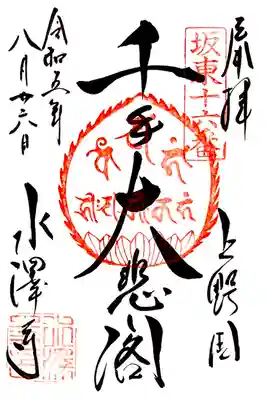 奉拝
坂東十六番
上野国
千手大悲閣
水澤寺
令和五年
八月廿六日